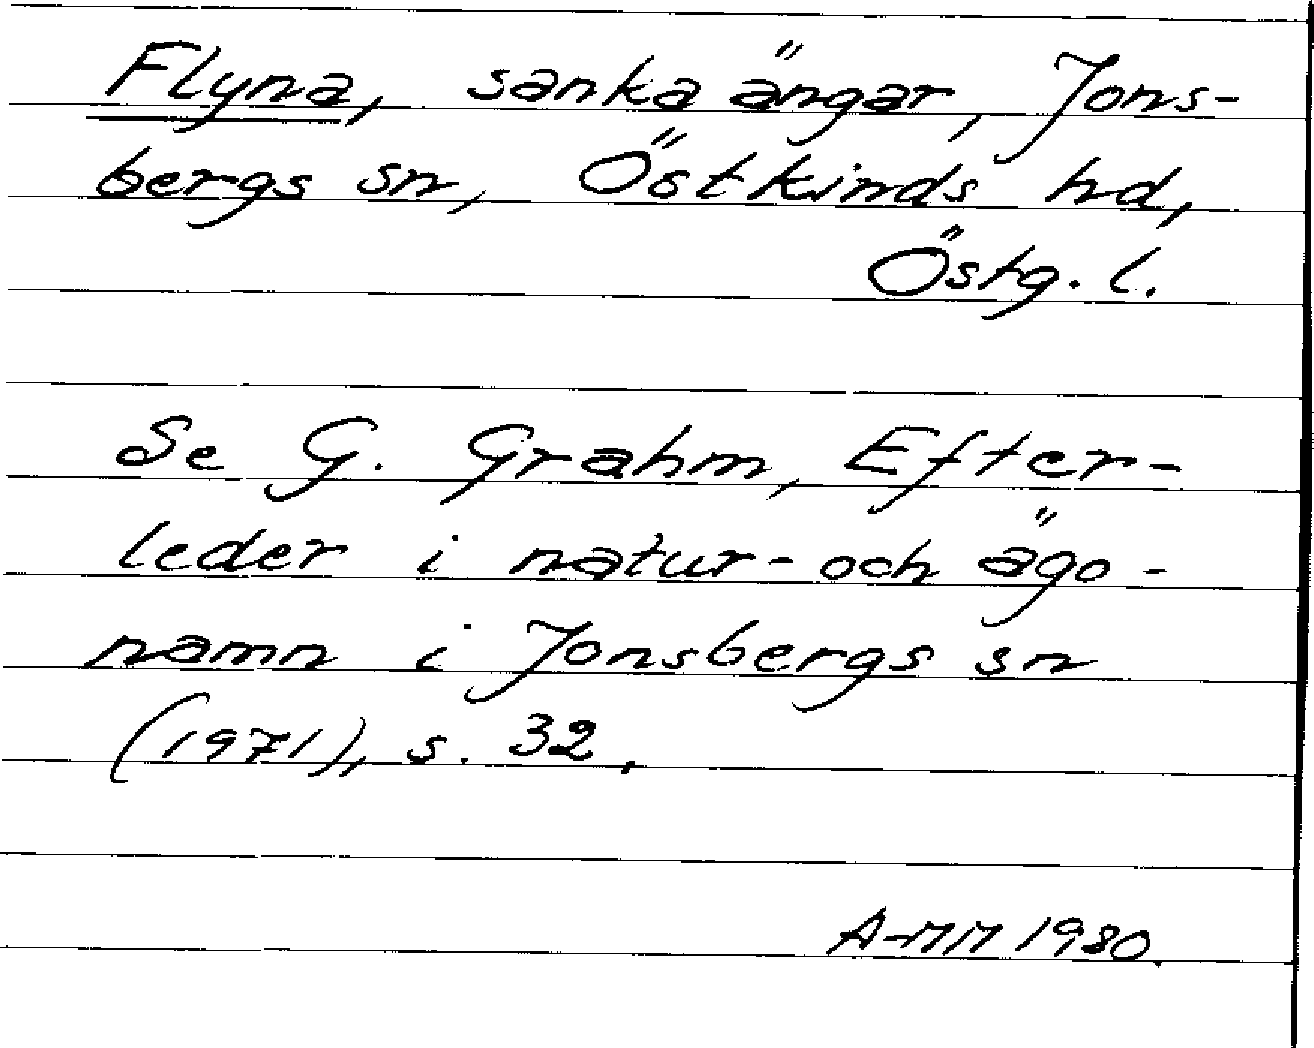 Flyna, sanka ängar, Jons-
bergs sn, Östkinds hd,
Östg. l.
Se G. Grahm, Efter-
leder i natur- och ägo-
namn i Jonsbergs sn
(1971), s. 32.
A-MM 1980.